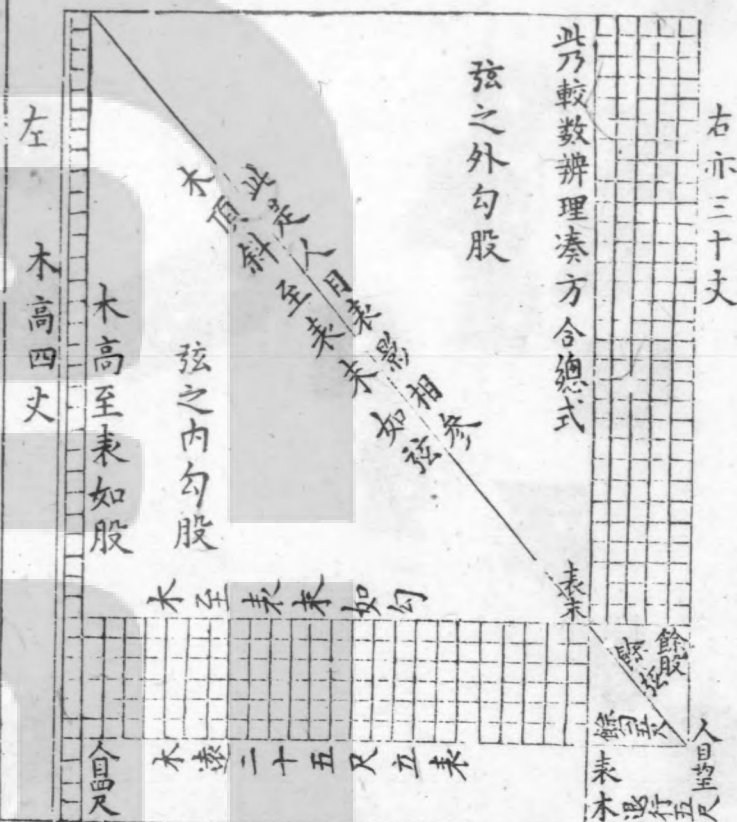 右亦三十丈
此乃較数辨理湊方合總式
弦之外勾股
此是人目表影相參
木頂斜至表末如弦
弦之内勾股
木高至表如股
木高四丈
左
表末
木至表末如勾
餘股
餘弦
餘勾五尺
人目望
表木退行五尺
木遠二十五尺立表
人目四尺